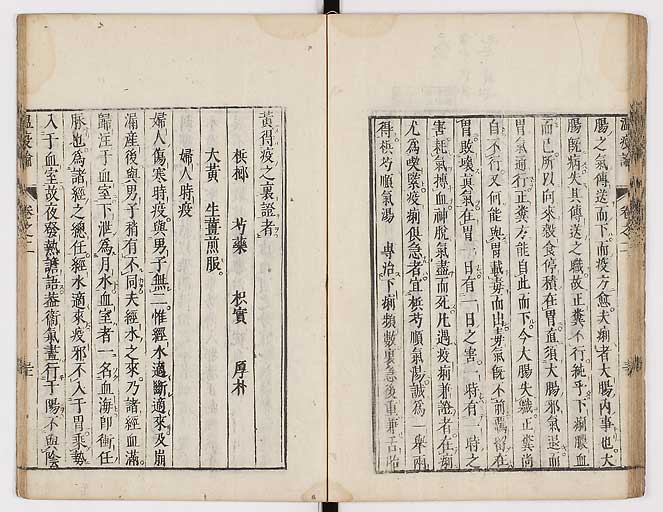 腸之氣傳送而下而疫方愈夫痢者大腸內事也大
腸既病失其傳送之職故正糞不行純乎下痢膿血
而已所以向來穀食停積在胃直須大腸邪氣退而
胃氣通行正糞方能自此而下今大腸失職正糞尚
自不行又何能與胃載毒而出毒氣既不前羈留在
胃最能敗壞眞氣在胃一日有一日之害一時有一時之
害耗氣搏血神脫氣盡而死凡遇疫痢兼證者在痢
尤爲喫緊疫痢俱急者宜梹芍順氣湯誠爲一舉兩
得梹芍順氣湯 專治下痢頻數裏急後重兼舌胎
黃得疫之裏證者
梹榔 芍藥 枳實 厚朴
大黃 生薑煎服
婦人時疫
婦人傷寒時疫與男子無二惟經水適斷適來及崩
漏產後與男子稍有不同夫經水之來乃諸經血滿
歸注于血室下泄爲月水血室者一名血海卽衝任
脉也爲諸經之總任經水適來疫邪不入于胃乘勢
入于血室故夜發熱譫語葢衛氣晝行于陽不與陰
溫疫論 卷之二